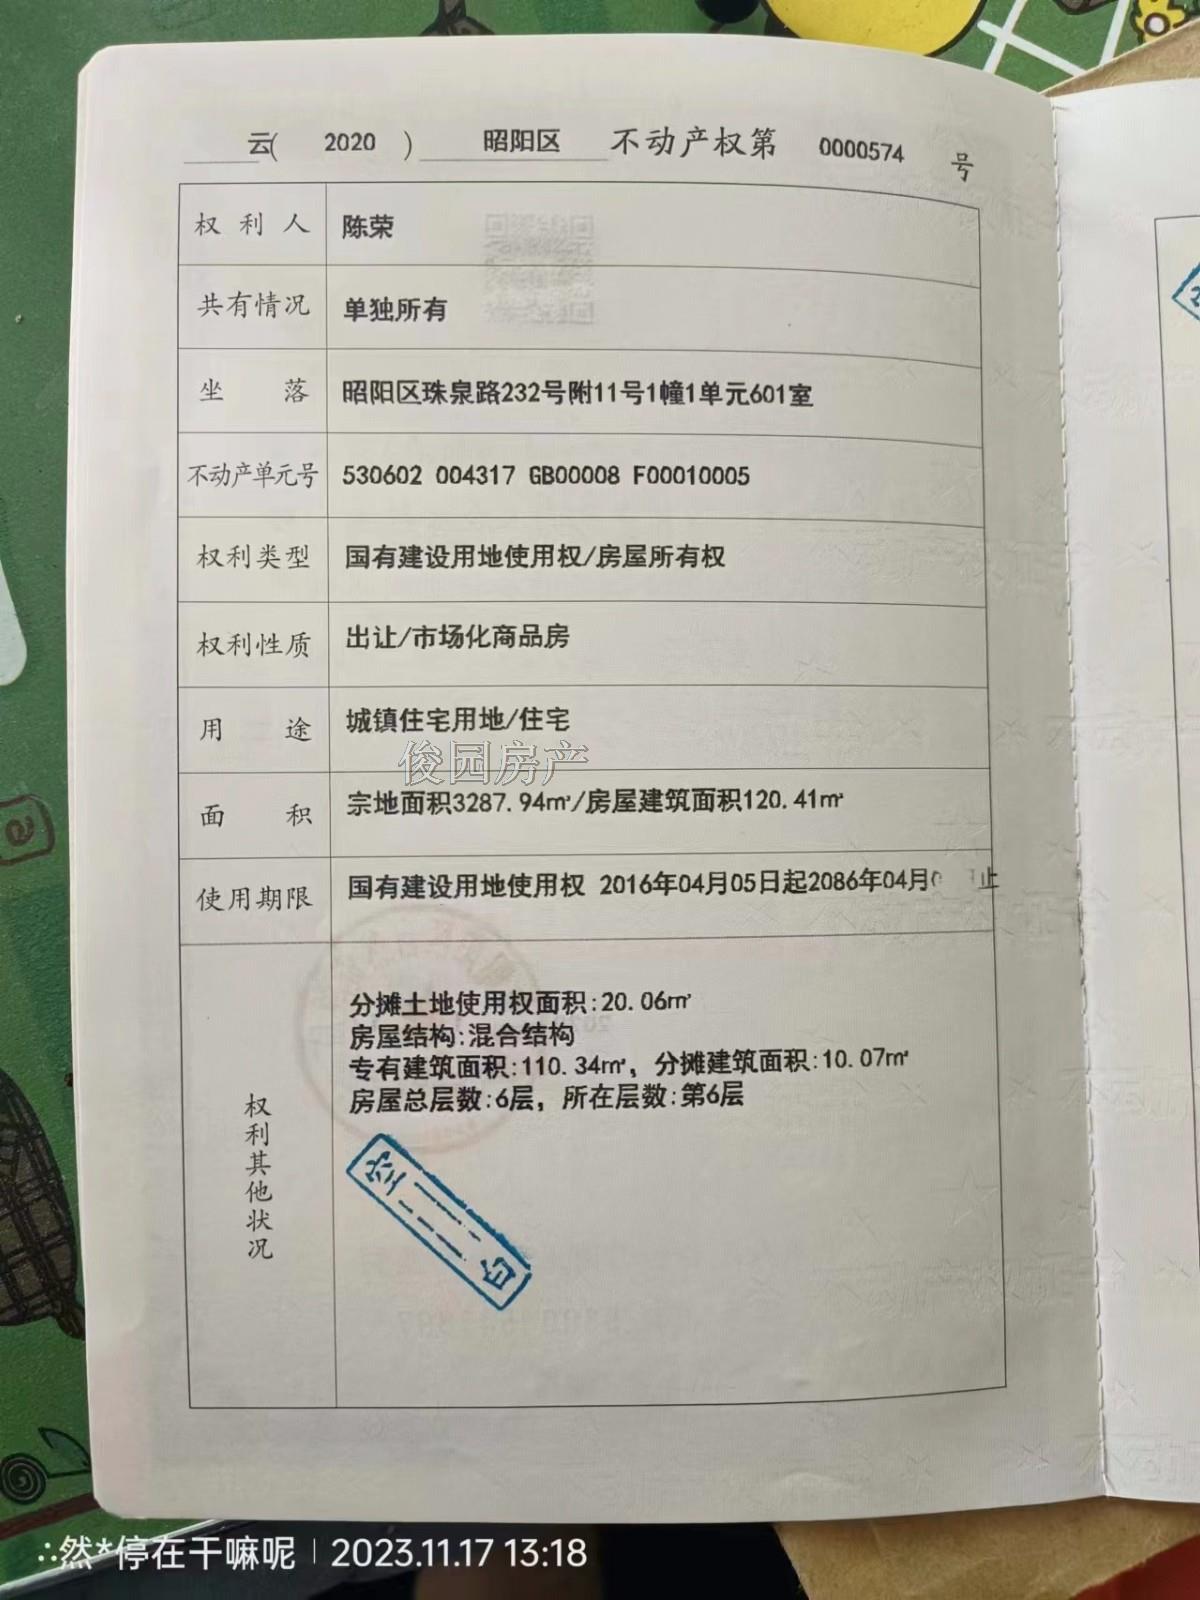 云( 2020 ) 昭阳区 不动产权第 0000574 号
权利人 陈荣
共有情况 单独所有
坐落 昭阳区珠泉路232号附11号1幢1单元601室
不动产单元号 530602 004317 GB00008 F00010005
权利类型 国有建设用地使用权/房屋所有权
权利性质 出让/市场化商品房
用途 城镇住宅用地/住宅
俊园房产
面积 宗地面积3287.94㎡/房屋建筑面积120.41㎡
使用期限 国有建设用地使用权 2016年04月05日起2086年04月 止
权利其他状况
分摊土地使用权面积:20.06㎡
房屋结构:混合结构
专有建筑面积:110.34㎡，分摊建筑面积:10.07㎡
房屋总层数:6层，所在层数:第6层
空白
然*停在干嘛呢 | 2023.11.17 13:18